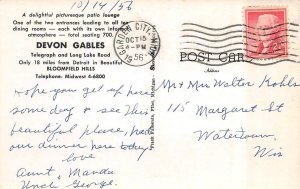 10/14/56
A delightful picturesque patio lounge
One of the two entrances leading to all ten
dining rooms — each with its own informal
atmosphere — total seating 700.
DEVON GABLES
Telegraph and Long Lake Road
Only 18 miles from Detroit in Beautiful
BLOOMFIELD HILLS
Telephone: Midwest 4-6800
GARDEN CITY
OCT 15
PM
1956
POST CARD
Address
2¢
Hope you get up here
some day & see this
beautiful place, had
our dinner here today
love
Aunt, Manda
Uncle George.
Mr & Mrs Walter Kohls
115 Margaret St
Watertown,
Wis